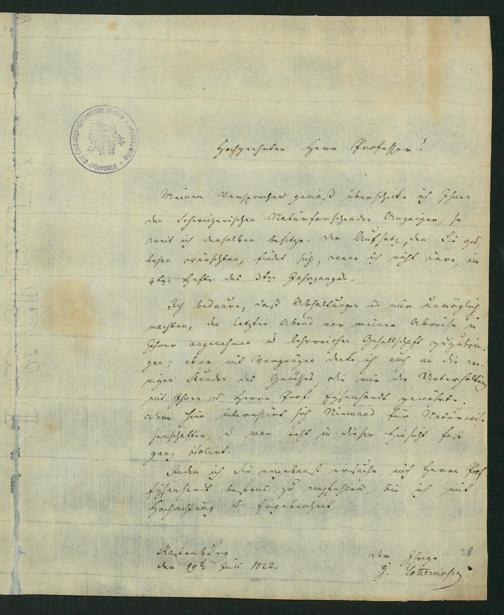 Hochgeehrter Herr Professor!
Meinem Versprechen gemäß überschicke ich Ihnen
den Schweizerischen Naturforschenden Anzeiger, so
weit ich denselben besitze. Der Aufsatz, den Sie zu
lesen wünschten, findet sich, wenn ich nicht irre, im
4ten Hefte des 3ten Jahrganges.
Ich bedaure, daß Abhaltungen es mir unmöglich
machten, den letzten Abend vor meiner Abreise in
Ihrer angenehmen u lehrreichen Gesellschaft zuzubrin-
gen; aber mit Vergnügen denke ich noch an die we-
nigen Stunden des Genusses, die mir die Unterhaltung
mit Ihnen u Herrn Prof. Eysenhardt gewährte.
Denn hier interessirt sich Niemand für Naturwis-
senschaften, u man steht in dieser Hinsicht fast
ganz isolirt.
Indem ich Sie ergebenst ersuche, mich Herrn Prof
Eysenhardt bestens zu empfehlen bin ich mit
Hochachtung u Ergebenheit
Rastenburg
den 29ten Juli 1822.
der Ihrige